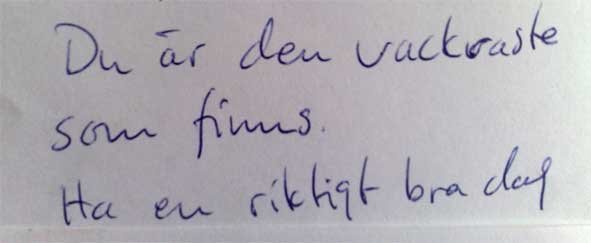 Du är den vackraste
som finns.
Ha en riktigt bra dag